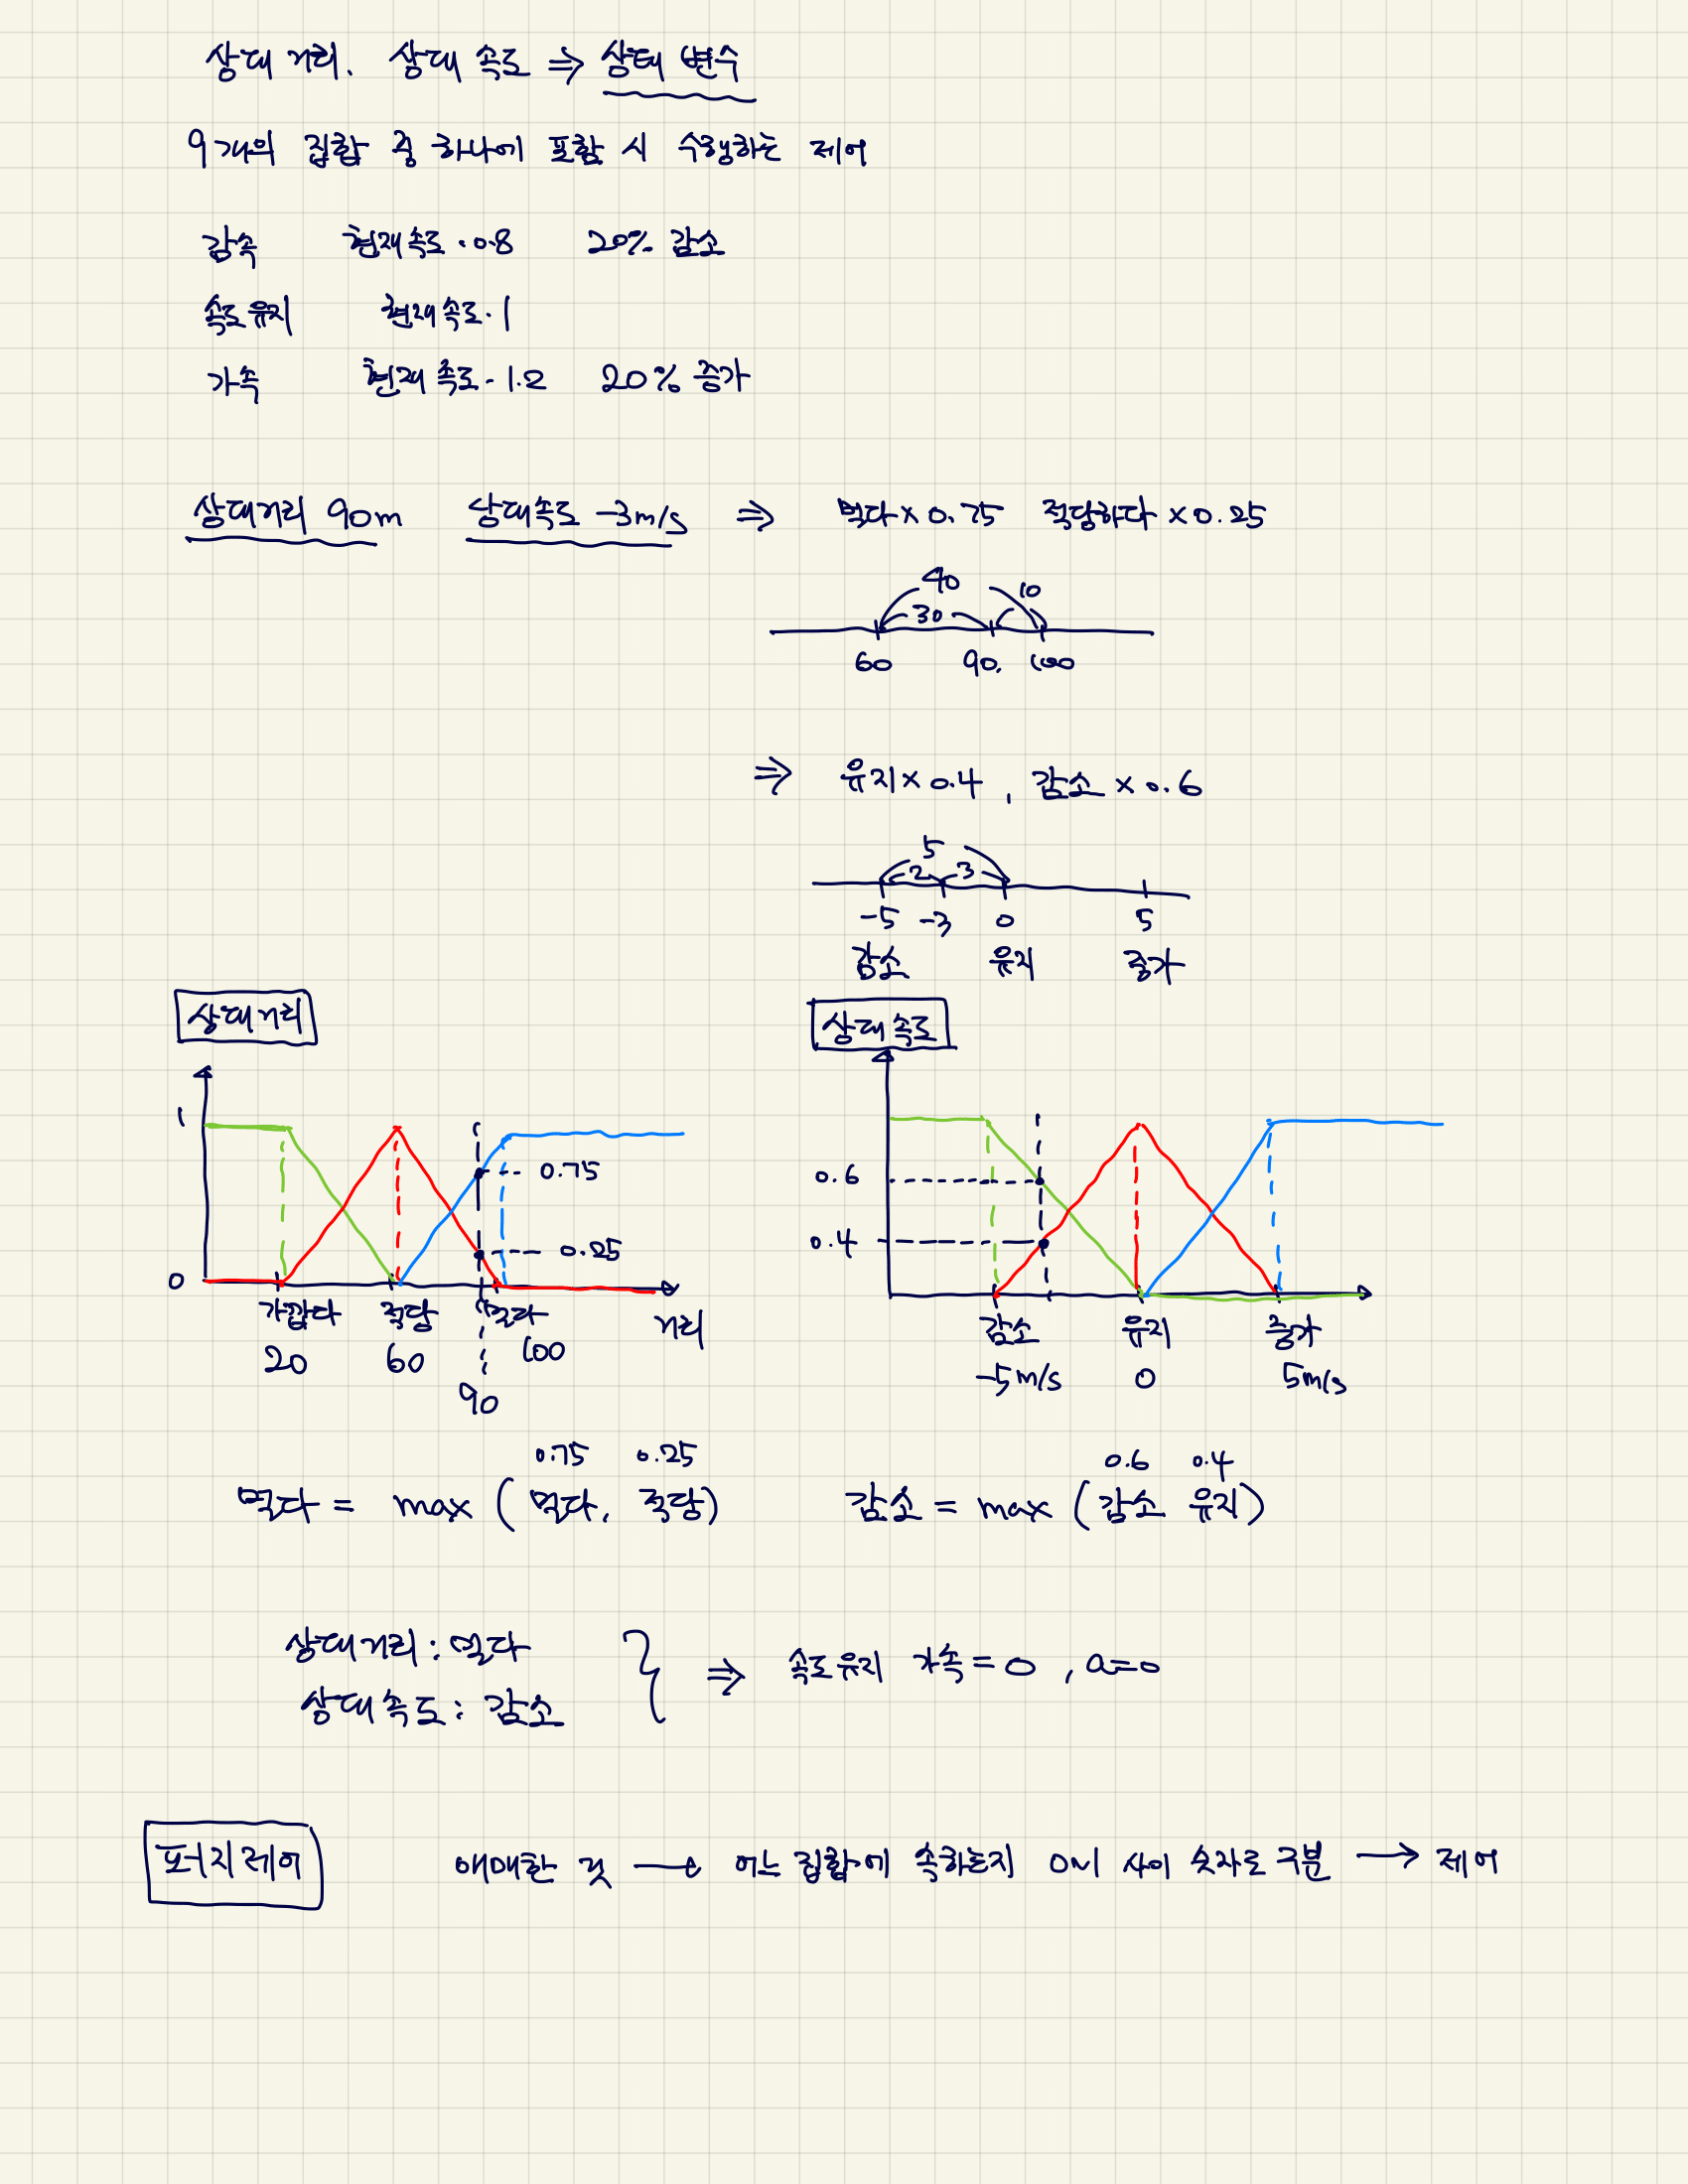 상대 거리. 상대 속도 ⇒ 상태 변수
9개의 집합 중 하나에 포함 시 수행하는 제어
감속 현재속도·0.8 20% 감소
속도유지 현재속도·1
가속 현재속도·1.2 20% 증가
상대거리 90m 상대속도 -3m/s ⇒ 멀다×0.75 적당하다×0.25
40 10
30
60 90. 100
⇒ 유지×0.4, 감소×0.6
5
2 3
-5 -3 0 5
감소 유지 증가
상대거리
1
0.75
0.25
0
가깝다 적당 멀다 거리
20 60 100
90
상대속도
0.6
0.4
감소 유지 증가
-5m/s 0 5m/s
0.75 0.25
멀다 = max (멀다, 적당)
0.6 0.4
감소 = max (감소 유지)
상대거리: 멀다
상대속도: 감소
⇒ 속도유지 가속=0, a=0
퍼지제어
애매한 것 → 어느 집합에 속하는지 0~1 사이 숫자로 구분 → 제어